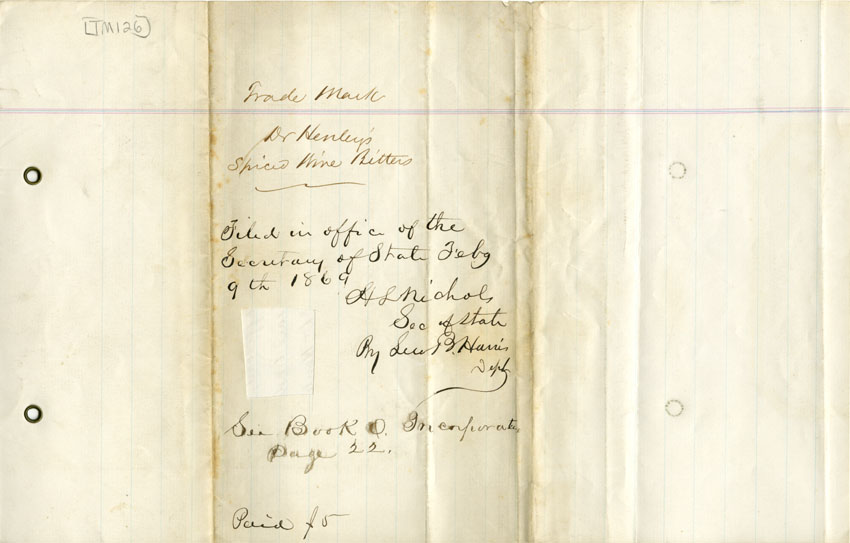 [TM126]
Trade Mark
Dr Henley's
Spiced Wine Bitters
Filed in office of the
Secretary of State Feby
9th 1869
H L Nichols
Sec of State
By Lew B. Harris
Dept
See Book Incorporate
Page 22.
Paid $5